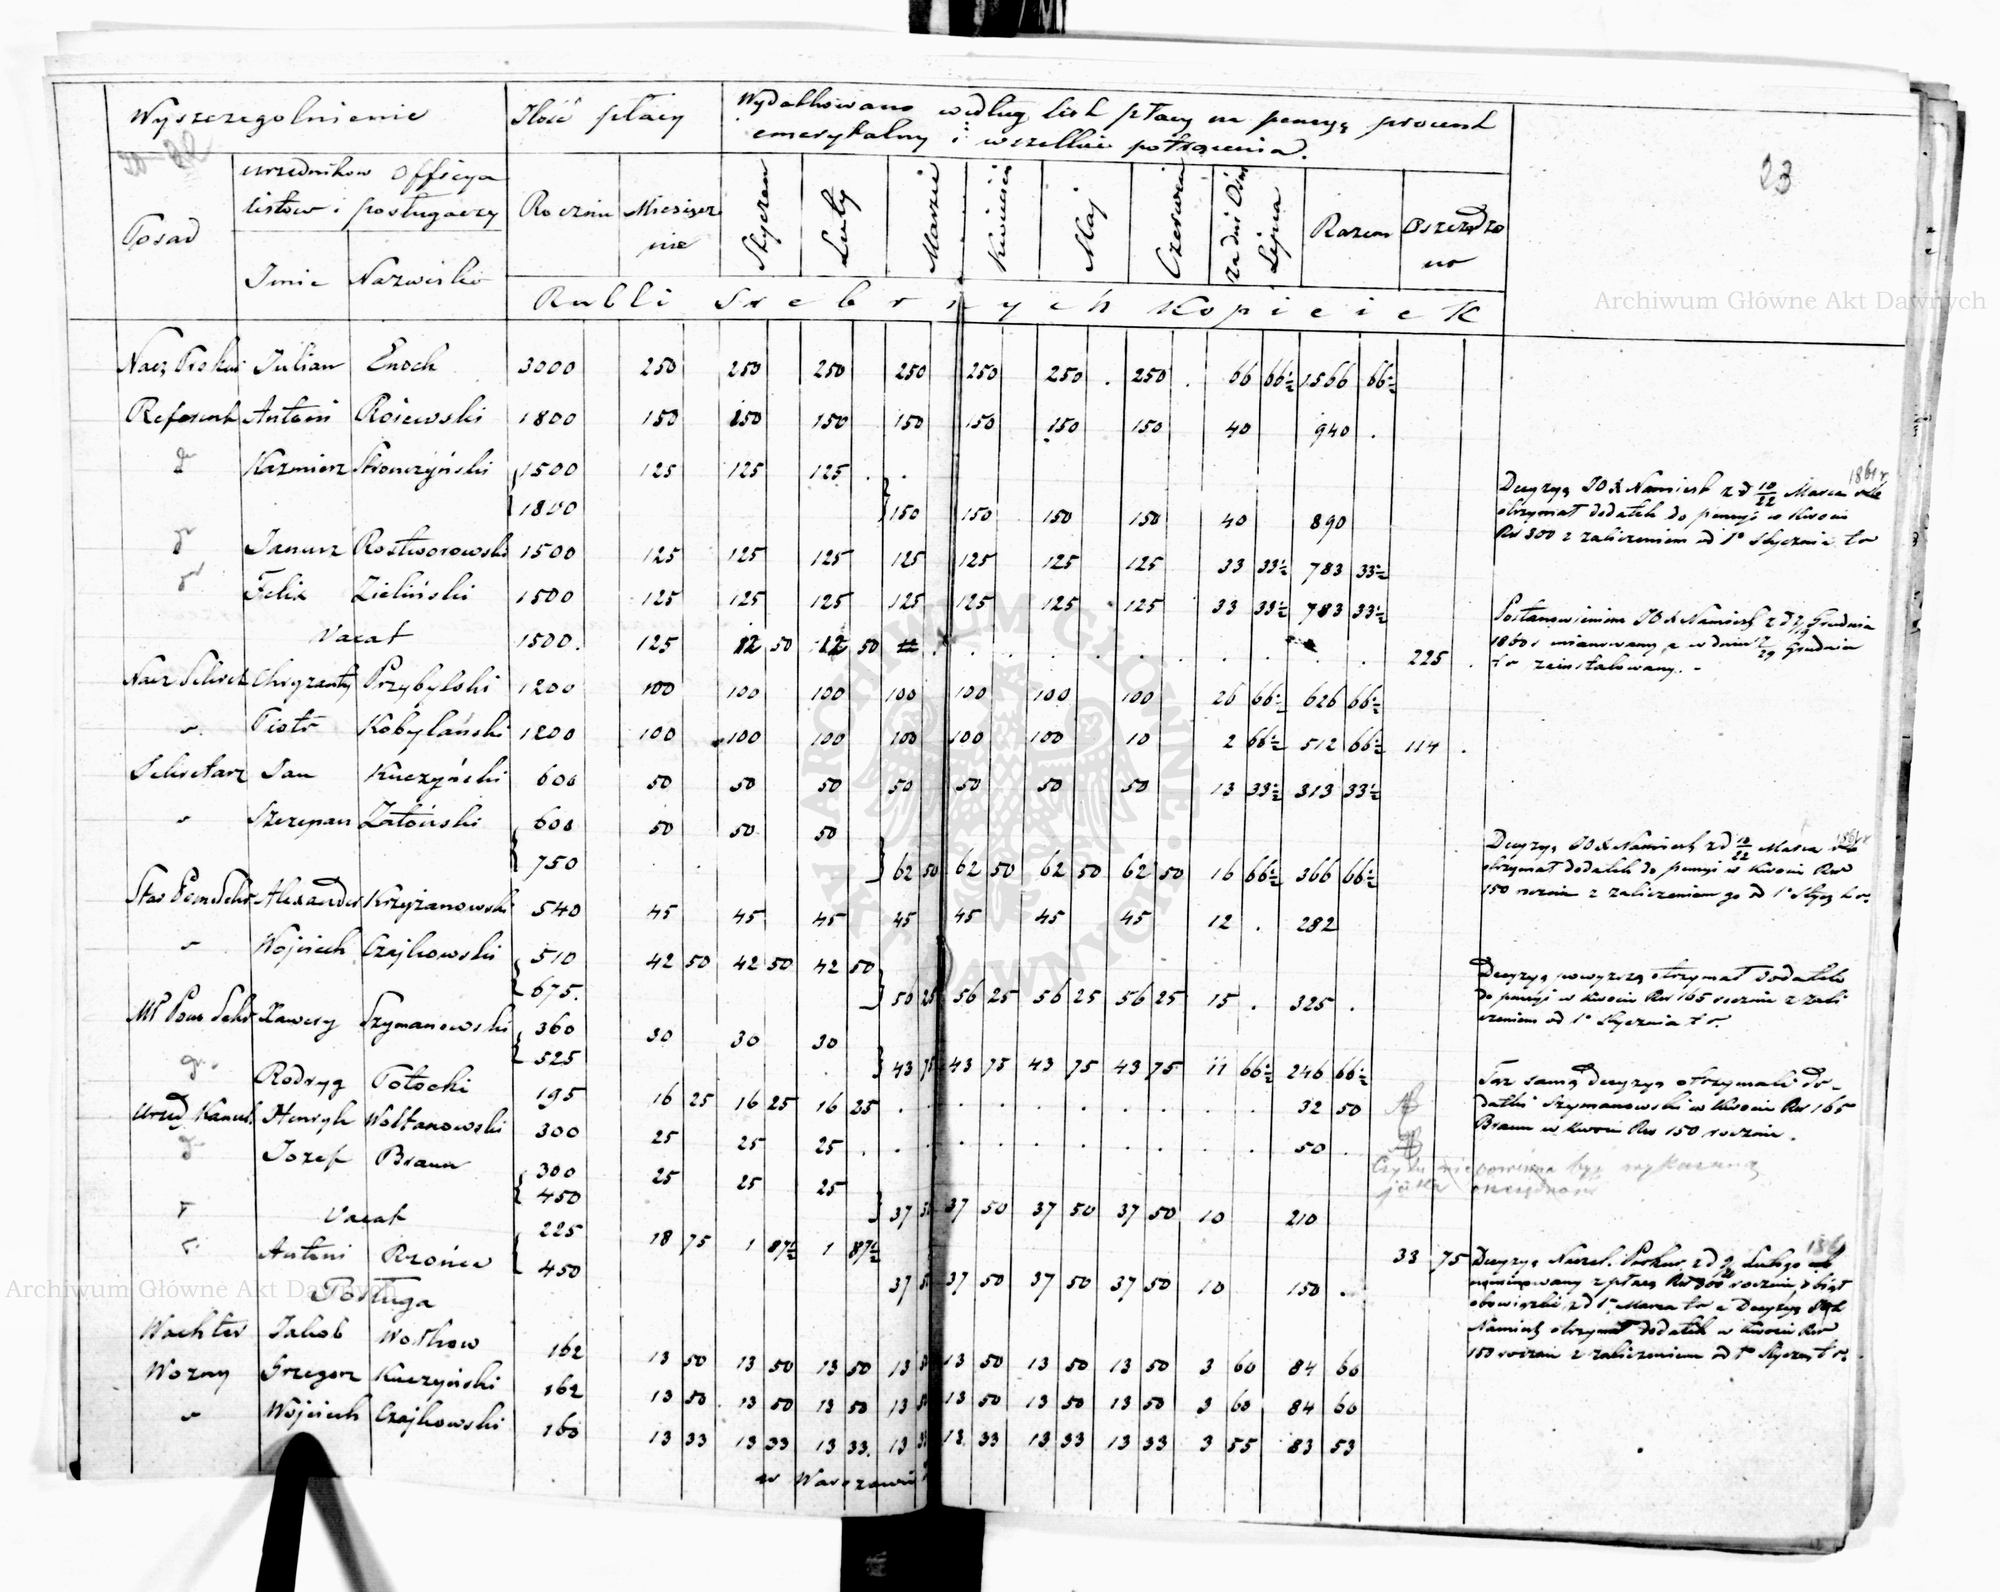 Wyszczegolnienie
Ilość płacy
Wydatkowano według list płacy na pensyą procent
emerytalny i wszelkie potrącenia.
23
Posad
urzedników officya
listów i posługaczy
Imie Nazwisko
Rocznie Miesięcz
nie
Styczeń Luty Marzec Kwiecień Maj Czerwiec za dni Lipca Razem Oszczędzo
no
Rubli Srebrnych Kopieiek
Archiwum Główne Akt Dawnych
Nacz Prokur Julian Enoch 3000 250 250 250 250 250 250 . 250 . 66 66½ 1566 66½
Referent Antoni Rosewski 1800 150 150 150 150 150 150 150 40 940 .
d° Kazmierz Stronczyński 1500 125 125 125 . .
1800 150 150 150 150 40 890
Decyzyą JO X Namiest z d 10/22 Marca 1861 r
otrzymał dodatek do pensyi w kwocie
Rs 300 z zaliczeniem od 1° Stycznia t r
d° Janusz Rostworowski 1500 125 125 125 125 125 125 125 33 33½ 783 33½
d° Felix Zieliński 1500 125 125 125 125 125 125 125 33 33½ 783 33½
Vacat 1500. 125 12 50 12 50 225 .
Postanowieniem JO X Namiest z d Grudnia
1860 r mianowany a w dniu Grudnia
t r zainstalowany. -
Nacz Sekret Chryzanty Przybylski 1200 100 100 100 100 100 100 100 26 66½ 626 66½
" Piotr Kobylański 1200 100 100 100 100 100 100 10 2 66½ 512 66½ 114 .
Sekretarz Jan Kuczyński 600 50 50 50 50 50 50 50 13 33½ 313 33½
" Szczepan Zatoński 600 50 50 50
750 62 50 62 50 62 50 62 50 16 66½ 366 66½
Decyzyą JO X Namiest z d 10/22 Marca 1861 r
otrzymał dodatek do pensyi w kwocie Rs
150 rocznie z zaliczeniem go od 1° Stycz t r.
Star Pom Sekr Alexander Krzyżanowski 540 45 45 45 45 45 45 45 12 . 282
" Wojciech Czajkowski 510 42 50 42 50 42 50
675. 56 25 56 25 56 25 56 25 15 . 325 .
Decyzyą powyższą otrzymał dodatek
do pensyi w kwocie Rs 165 rocznie z zali
czeniem od 1° Stycznia t r.
Mł Pom Sekr Xawery Szymanowski 360 30 30 30
525 43 75 43 75 43 75 43 75 11 66½ 246 66½
d° Rodryg Potocki 195 16 25 16 25 16 25 32 50
Taż samą decyzyą otrzymali do-
datki Szymanowski w kwocie Rs 165
Braun w kwocie Rs 150 rocznie.
Urzęd Kancel Henryk Woltanowski 300 25 25 25 50 .
d° Jozef Braun 300 25 25 25
450 37 50 37 50 37 50 37 50 10 210
być wykazana
" Vacat 225 18 75 1 87½ 1 87½ 33 75
" Antoni Rzońca 450 37 50 37 50 37 50 37 50 10 150 .
Decyzyą Naczel. Prokur. z d Lutego
z płacą Rs 300 rocznie, objął
obowiązki z d 1° Marca t r a Decyzyą
Namiest otrzymał dodatek w kwocie Rs
150 rocznie z zaliczeniem od 1° Stycz t r.
Archiwum Główne Akt Dawnych
Posługa
Wachter Jakob Wołkow 162 13 50 13 50 13 50 13 50 13 50 13 50 13 50 3 60 84 60
Wozny Grzegorz Kuczyński 162 13 50 13 50 13 50 13 50 13 50 13 50 13 50 3 60 84 60
" Wojciech Czajkowski 160 13 33 13 33 13 33. 13 33 13 33 13 33 13 33 3 55 83 53
w Warszawie
ARCHIWUM GŁÓWNE AKT DAWNYCH